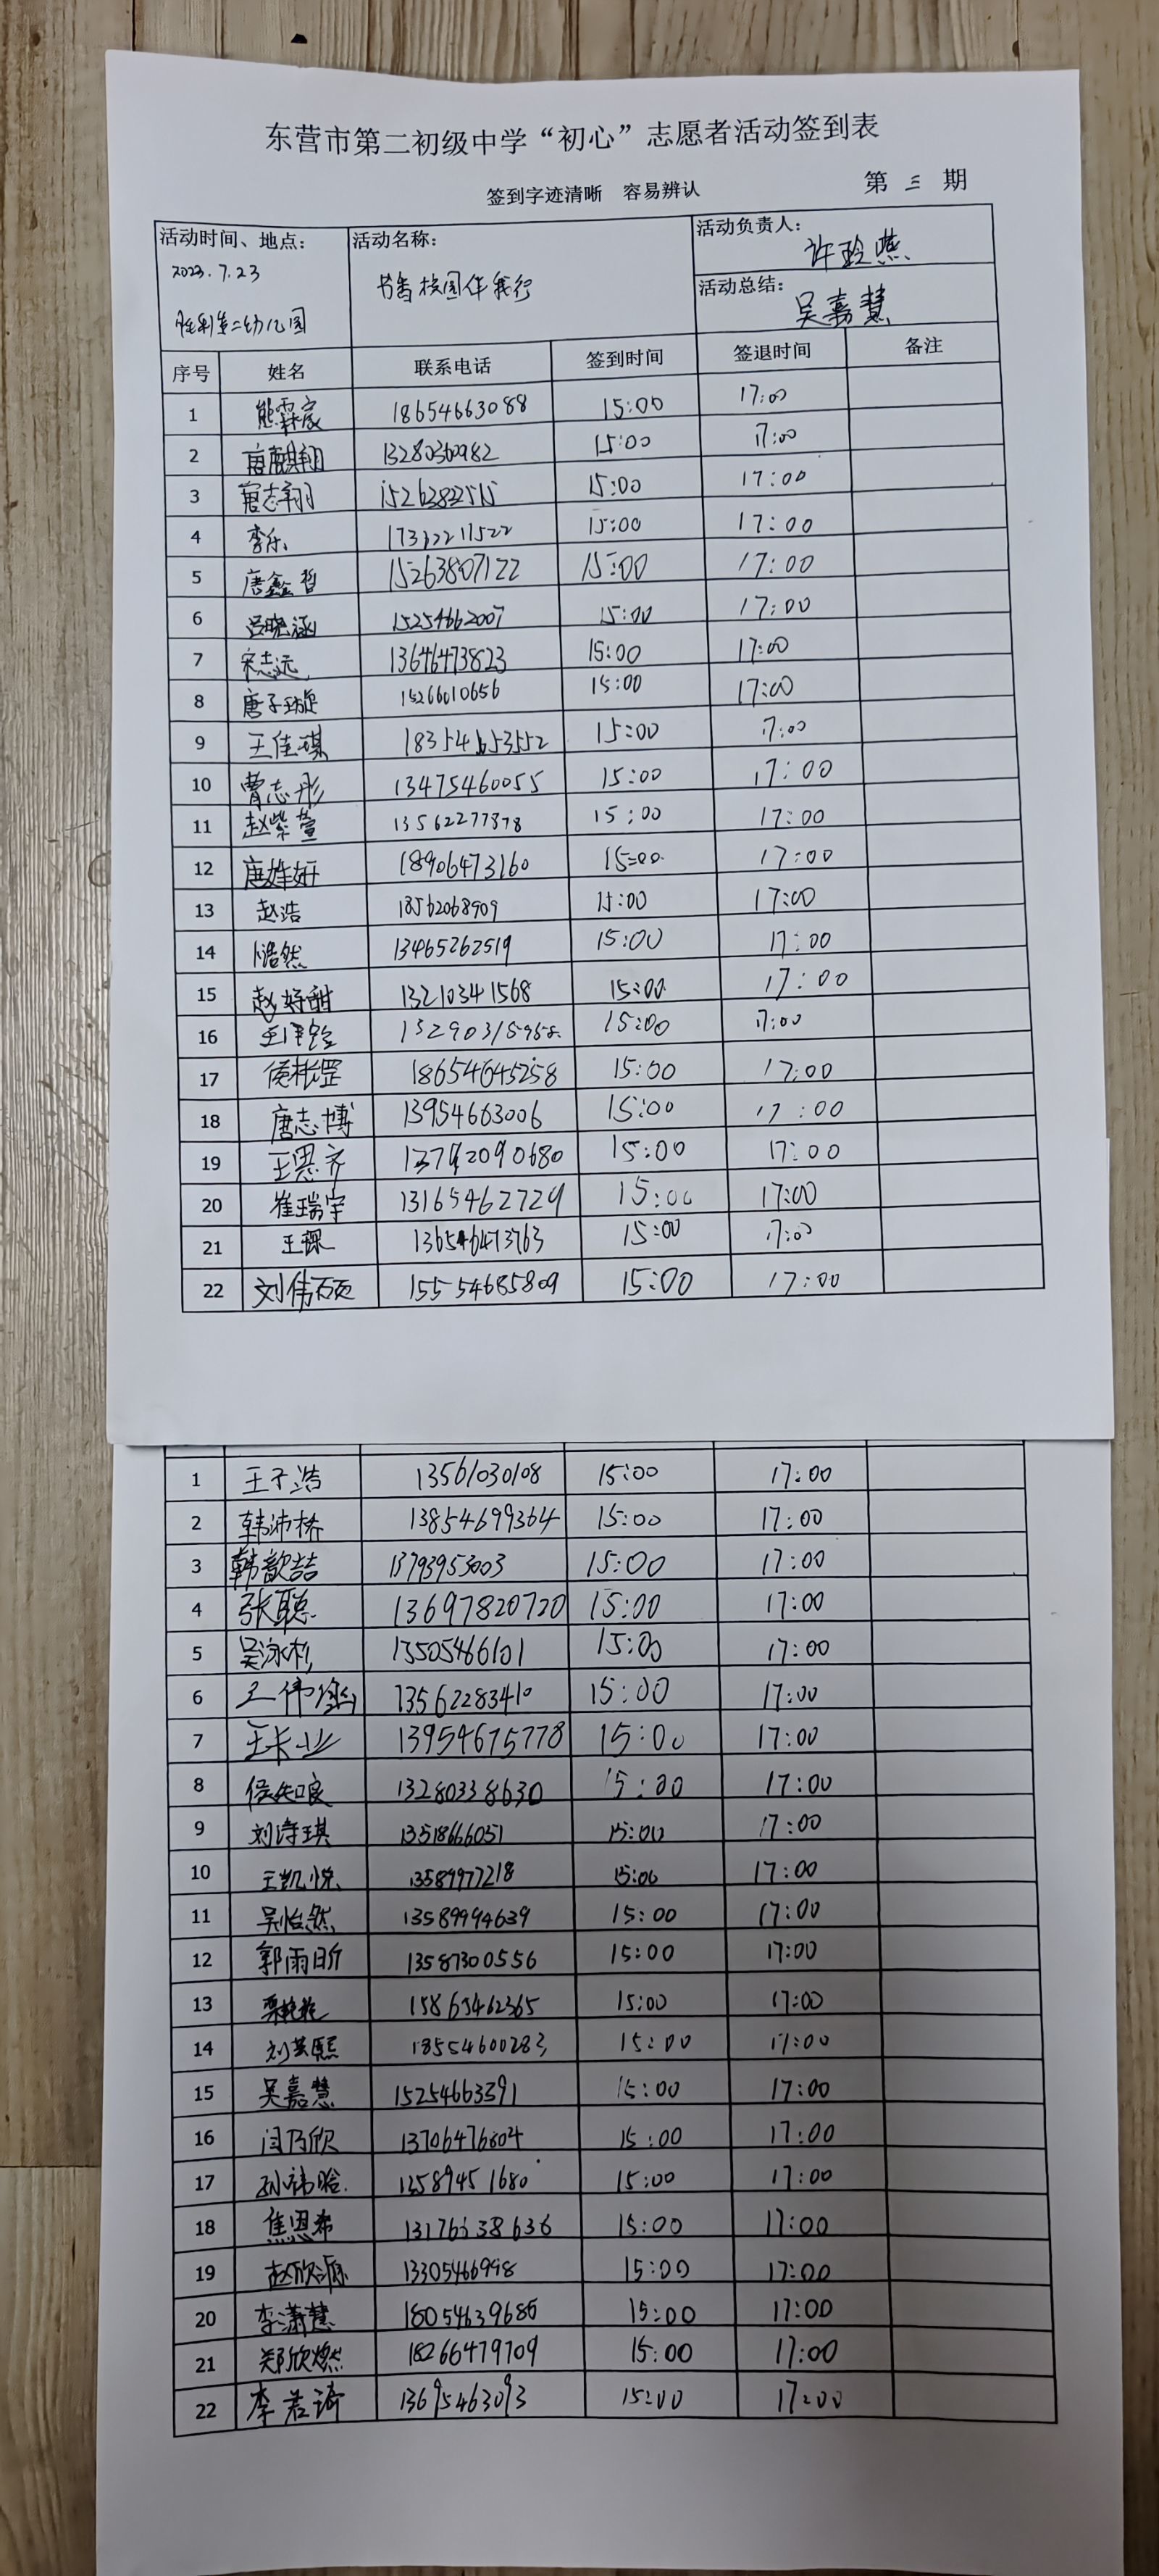 东营市第二初级中学“初心”志愿者活动签到表
签到字迹清晰 容易辨认 第 三 期
活动时间、地点： 活动名称： 活动负责人： 许玲燕
2023.7.23 书香校园伴我行 活动总结： 吴嘉慧
胜利第二幼儿园
序号 姓名 联系电话 签到时间 签退时间 备注
1 熊霖宸 18654663088 15:00 17:00
2 唐麒翔 13280360982 15:00 17:00
3 窦志翔 15263832515 15:00 17:00
4 李乐 15:00 17:00
5 唐鑫哲 15263807122 15:00 17:00
6 吕晓涵 15254662007 15:00 17:00
7 宋志远 13646473823 15:00 17:00
8 唐子璇 15266010656 15:00 17:00
9 王佳琪 18354653552 15:00 17:00
10 曹志彤 13475460055 15:00 17:00
11 赵紫萱 13562277878 15:00 17:00
12 唐婼妍 18906473160 15:00 17:00
13 赵浩 18562068909 15:00 17:00
14 浩然 13465262519 15:00 17:00
15 赵好甜 13210341568 15:00 17:00
16 15:00 17:00
17 18654645258 15:00 17:00
18 唐志博 13954663006 15:00 17:00
19 王恩齐 13792090680 15:00 17:00
20 崔瑞宇 13165462729 15:00 17:00
21 13654673763 15:00 17:00
22 刘伟硕 15554685809 15:00 17:00
1 王子浩 13561030108 15:00 17:00
2 韩沛桥 13854699364 15:00 17:00
3 韩歆喆 13793953003 15:00 17:00
4 张聪 13697820720 15:00 17:00
5 吴泳杉 13505466101 15:00 17:00
6 王伟 13562283410 15:00 17:00
7 王长业 13954675778 15:00 17:00
8 侯知良 13280338630 15:00 17:00
9 刘诗琪 13518666051 15:00 17:00
10 王凯悦 13589977218 15:00 17:00
11 吴怡然 13589994639 15:00 17:00
12 郭雨昕 13587300556 15:00 17:00
13 15865462365 15:00 17:00
14 刘芸熙 18554600283 15:00 17:00
15 吴嘉慧 15254663391 15:00 17:00
16 闫乃欣 13706476804 15:00 17:00
17 孙祎晗 13589451680 15:00 17:00
18 焦恩希 13176538636 15:00 17:00
19 赵欣源 13305466998 15:00 17:00
20 李潇慧 18054639686 15:00 17:00
21 郑欣燃 18266479709 15:00 17:00
22 李若涛 13695463093 15:00 17:00